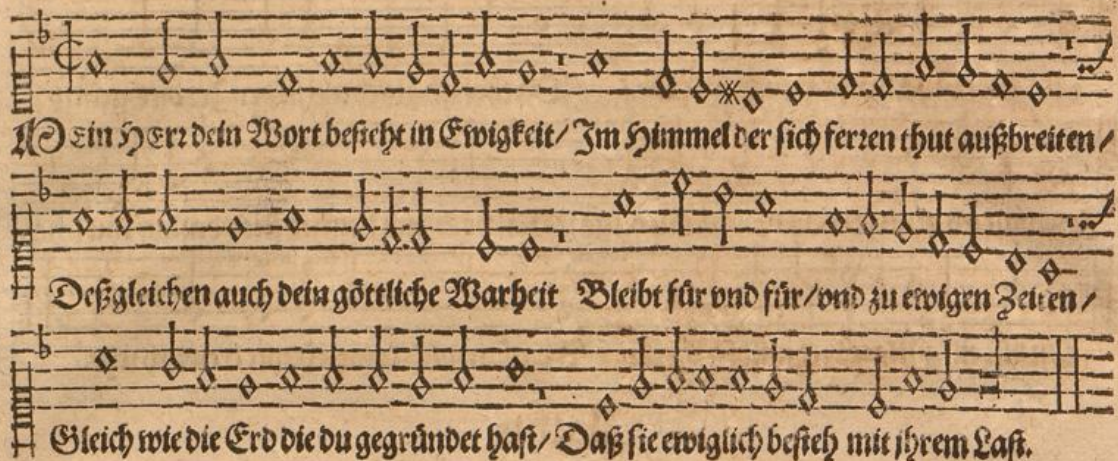 DEin HErr dein Wort besteht in Ewigkeit/ Im Himmel der sich ferren thut außbreiten/
Deßgleichen auch dein göttliche Warheit Bleibt für vnd für/vnd zu ewigen Zeiten/
Gleich wie die Erd die du gegründet hast/ Daß sie ewiglich besteh mit jhrem Last.